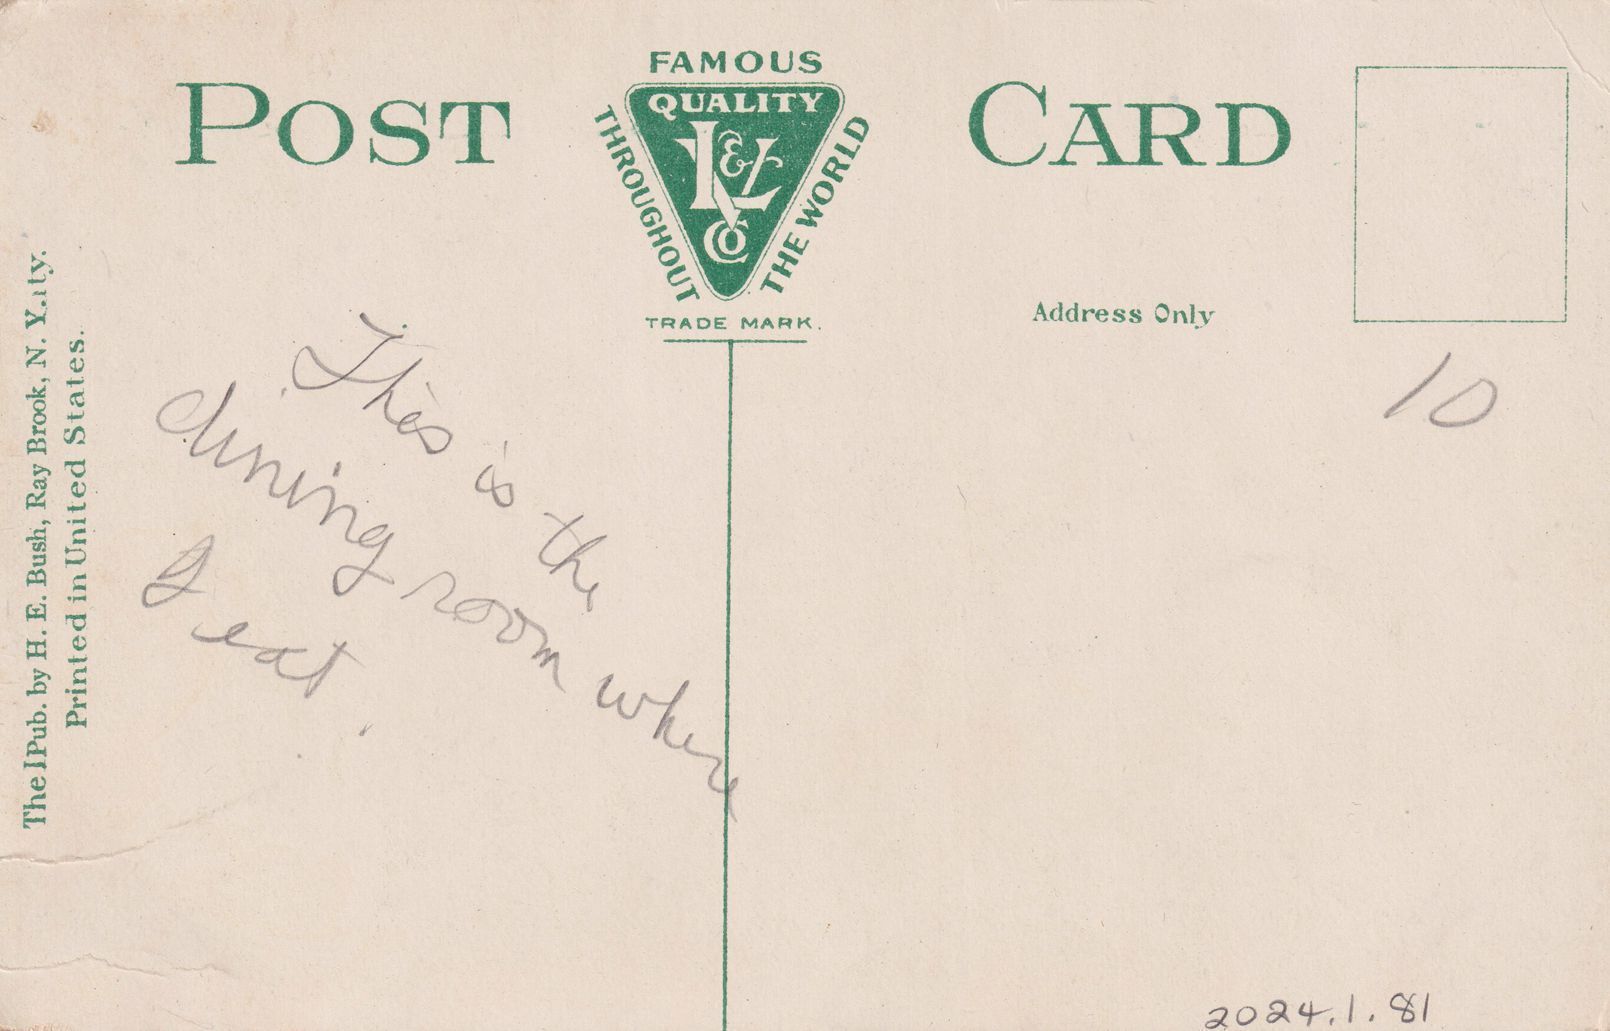 FAMOUS
QUALITY
THROUGHOUT
THE WORLD
K & V
CO
TRADE MARK.
POST CARD
Address Only
This is the
dining room where
I eat.
10
Pub. by H. E. Bush, Ray Brook, N. Y.
Printed in United States.
2024.1.81